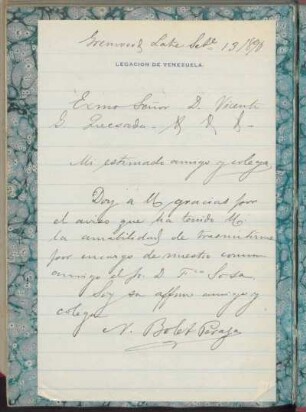 Greenwood Lake Sete. 13/890
LEGACION DE VENEZUELA.
Exmo Señor D. Vicente
G. Quesada. & & &.
Mi estimado amigo y colega
Doy á U gracias por
el aviso que ha tenido U
la amabilidad de trasmitirme
por encargo de nuestro comun
amigo el Sr. D. Fco Sosa.
Soy su affmo amigo y
colega
N. Bolet Peraza